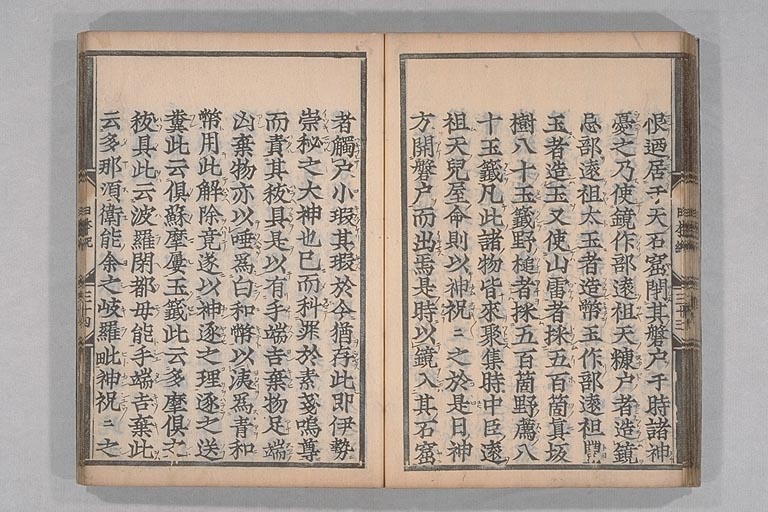 恨廼居于天石窟閇其磐戸于時諸神
憂之乃使鏡作部遠祖天糠戸者造鏡
忌部遠祖太玉者造幣玉作部遠祖豊
玉者造玉又使山雷者採五百箇眞坂
樹八十玉籤野槌者採五百箇野薦八
十玉籤凡此諸物皆來聚集時中臣遠
祖天兒屋命則以神祝〻之於是日神
方開磐戸而出焉是時以鏡入其石窟
者觸戸小瑕其瑕於今猶存此即伊勢
崇秘之大神也已而科罪於素戔嗚尊
而責其秡具是以有手端吉棄物足端
凶棄物亦以唾爲白和幣以洟爲青和
幣用此解除竟遂以神逐之理逐之送
糞此云倶蘇摩屢玉籤此云多摩倶之
秡具此云波羅閉都母能手端吉棄此
云多那須衞能余之岐羅毗神祝〻之
日本紀
三十三
日本紀
三十四